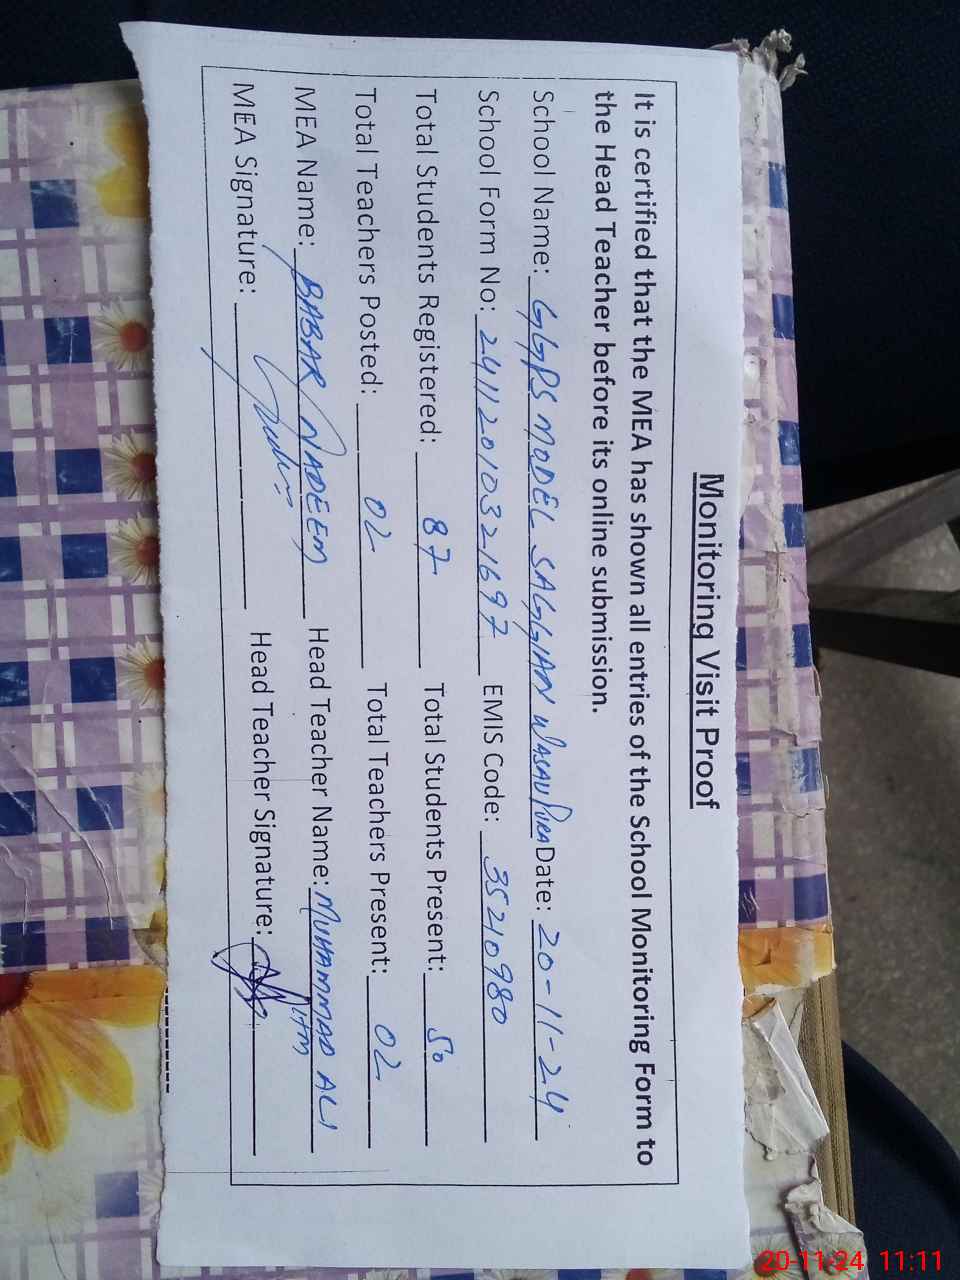 Monitoring Visit Proof
It is certified that the MEA has shown all entries of the School Monitoring Form to
the Head Teacher before its online submission.
School Name: GGPS MODEL SAGGIAN WASAUPURA Date: 20-11-24
School Form No: 24112010321697 EMIS Code: 35210980
Total Students Registered: 87 Total Students Present: 50
Total Teachers Posted: 02 Total Teachers Present: 02
MEA Name: BABAR NADEEM Head Teacher Name: MUHAMMAD ALI
MEA Signature: Head Teacher Signature:
20-11-24 11:11